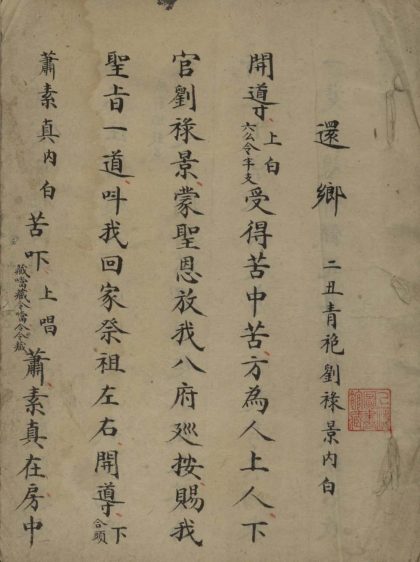 還鄉 二丑青袍劉祿景內白
開導 上白 六公令半支 受得苦中苦方為人上人下
官劉祿景蒙聖恩放我八府巡按賜我
聖旨一道叫我回家祭祖左右開導 下 合頭
蕭素真內白苦吓上唱 蕭素真在房中